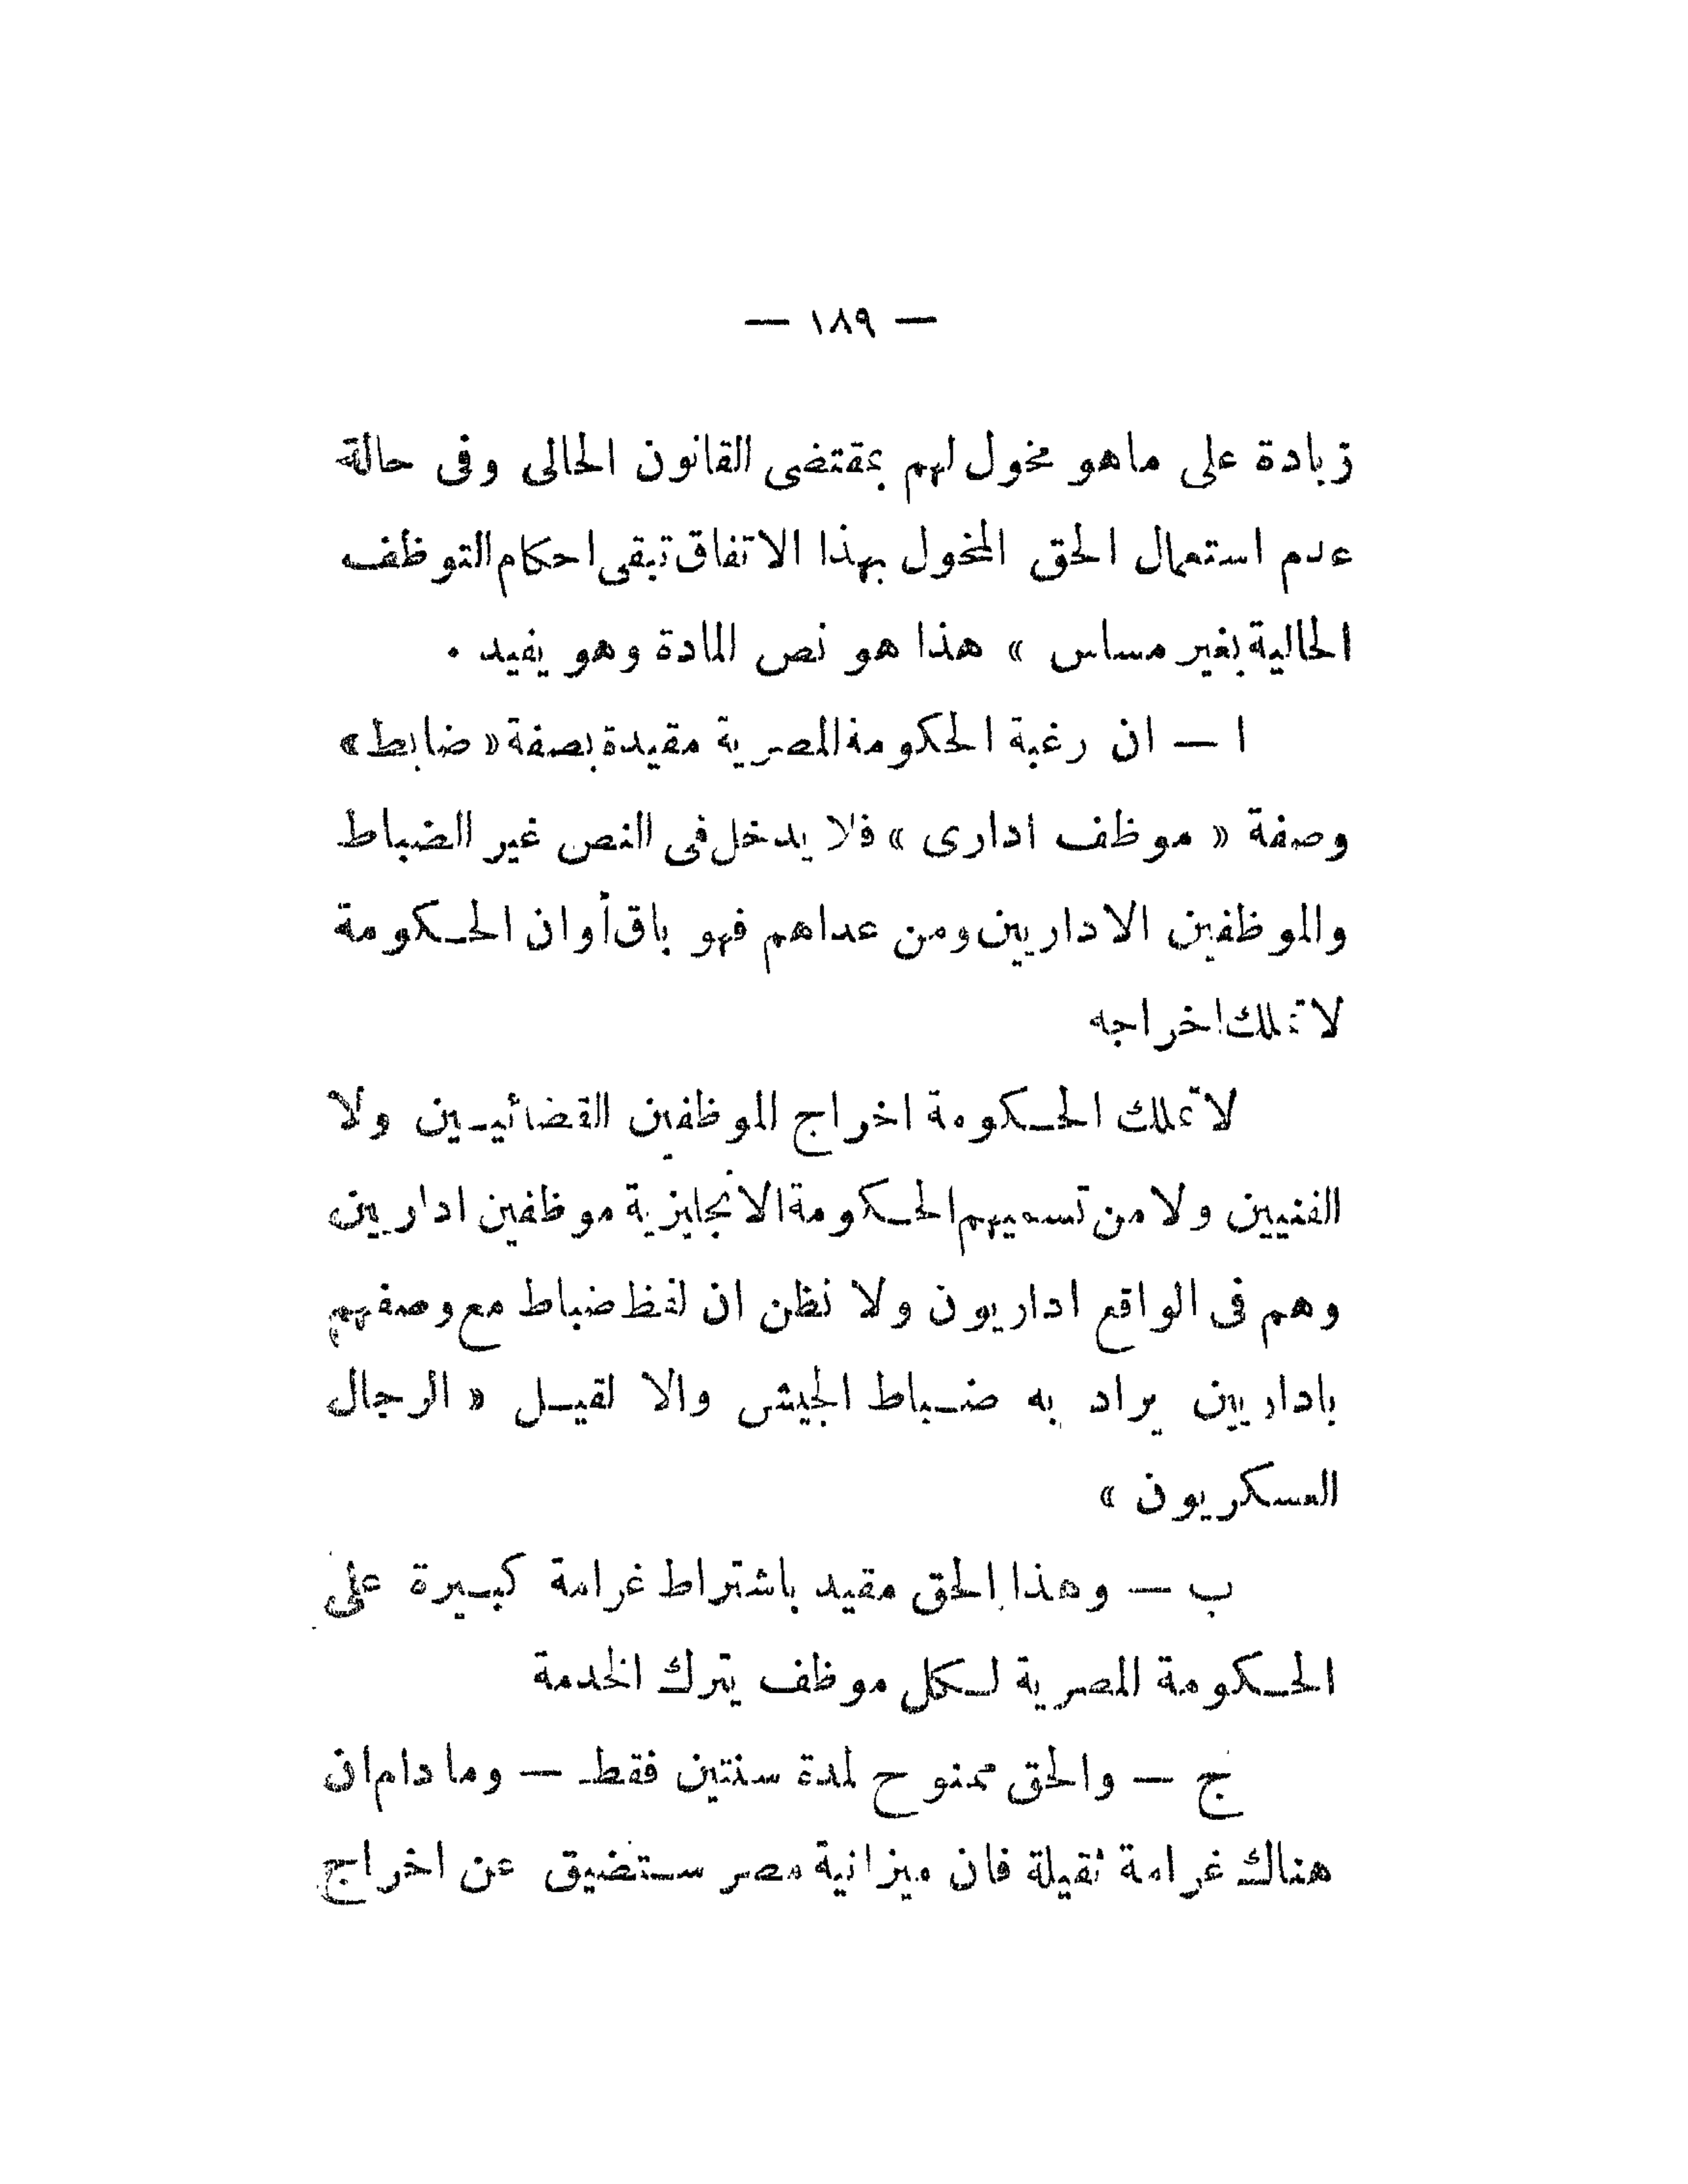 — ١٨٩ —
زيادة على ماهو مخول لهم بمقتضى القانون الحالى وفى حالة
عدم استعمال الحق المخول بهذا الاتفاق تبقى احكام التوظف
الحالية بغير مساس » هذا هو نص المادة وهو يفيد .
ا — ان رغبة الحكومة المصرية مقيدة بصفة « ضابط »
وصفة « موظف ادارى » فلا يدخل فى النص غير الضباط
والموظفين الاداريين ومن عداهم فهو باق أو ان الحكومة
لا تملك اخراجه
لا تملك الحكومة اخراج الموظفين القضائيين ولا
الفنيين ولا من تسميهم الحكومة الانجليزية موظفين اداريين
وهم فى الواقع اداريون ولا نظن ان لفظ ضباط مع وصفهم
باداريين يراد به ضباط الجيش والا لقيل « الرجال
العسكريون »
ب — وهذا الحق مقيد باشتراط غرامة كبيرة على
الحكومة المصرية لكل موظف يترك الخدمة
ج — والحق ممنوح لمدة سنتين فقط — وما دام ان
هناك غرامة ثقيلة فان ميزانية مصر ستضيق عن اخراج